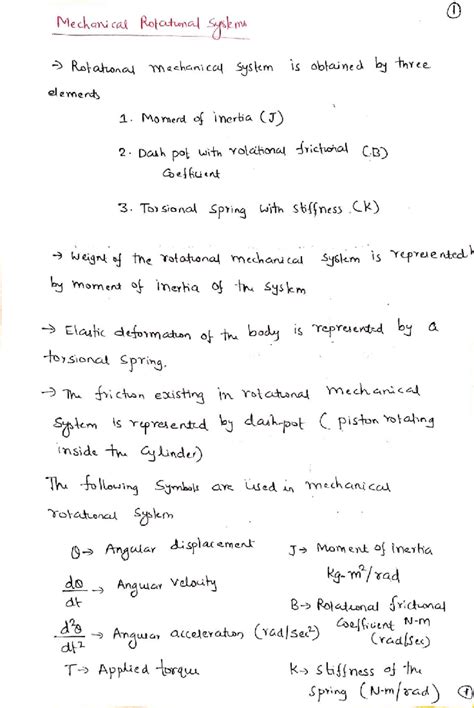 ①
Mechanical Rotational Systems
→ Rotational mechanical system is obtained by three
elements
1. Moment of inertia (J)
2. Dash pot with rotational frictional (B)
Coefficient
3. Torsional Spring with stiffness (K)
→ Weight of the rotational mechanical system is represented
by moment of inertia of the system
→ Elastic deformation of the body is represented by a
torsional spring.
→ The friction existing in rotational mechanical
System is represented by dash-pot ( piston rotating
inside the cylinder)
The following Symbols are used in mechanical
rotational system
θ→ Angular displacement
dθ/dt → Angular Velocity
d²θ/dt² → Angular acceleration (rad/sec²)
T→ Applied torque
J→ Moment of inertia
kg-m²/rad
B→ Rotational frictional
Coefficient N-m
(rad/sec)
K→ stiffness of the
spring (N-m/rad)
①